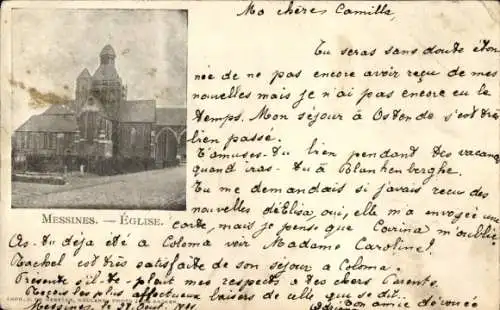 Ma chère Camille,
Tu seras sans doute éton
née de ne pas encore avoir reçu de mes
nouvelles mais je n'ai pas encore eu le
temps. Mon séjour à Ostende s'est très
bien passé.
T'amuses-tu bien pendant tes vacanc
quand iras-tu à Blankenberghe.
Tu me demandais si j'avais reçu des
nouvelles d'Elisa, oui, elle m'a envoyée une
MESSINES. — ÉGLISE.
carte, mais je pense que Carina m'oublie
As-tu déja été à Coloma voir Madame Caroline?
Rachel est très satisfaite de son séjour à Coloma.
Présente s'il-te-plait mes respects à tes chers Parents.
Reçois les plus affectueux baisers de celle que se dit
Messines, le 27
amie dévouée